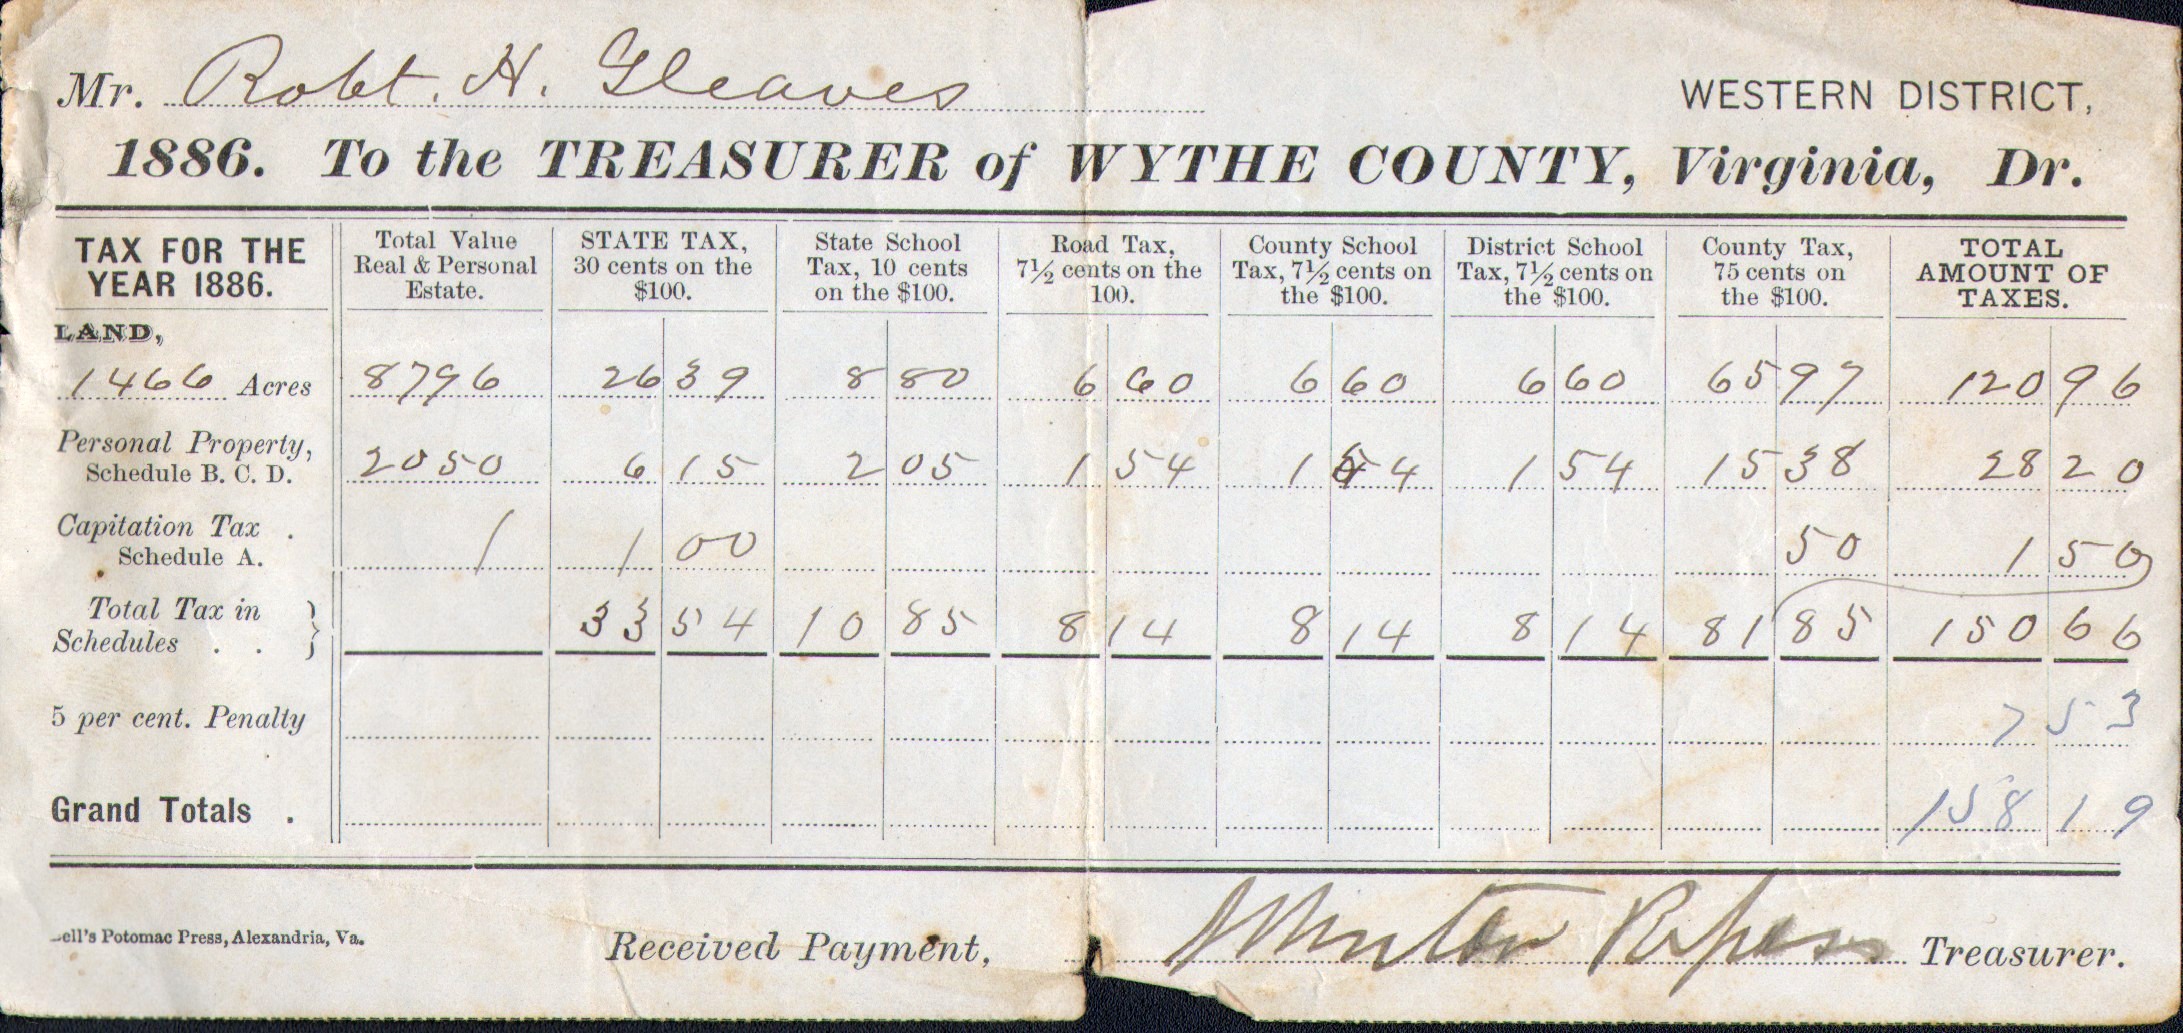 Mr. Robt. H. Gleaves
WESTERN DISTRICT,
1886. To the TREASURER of WYTHE COUNTY, Virginia, Dr.
TAX FOR THE YEAR 1886. Total Value Real & Personal Estate. STATE TAX, 30 cents on the $100. State School Tax, 10 cents on the $100. Road Tax, 7½ cents on the 100. County School Tax, 7½ cents on the $100. District School Tax, 7½ cents on the $100. County Tax, 75 cents on the $100. TOTAL AMOUNT OF TAXES.
LAND,
1466 Acres 8796 26 39 8 80 6 60 6 60 6 60 65 97 120 96
Personal Property, Schedule B. C. D. 2050 6 15 2 05 1 54 1 54 1 54 15 38 28 20
Capitation Tax . Schedule A. 1 1 00 50 1 50
Total Tax in Schedules . . } 33 54 10 85 8 14 8 14 8 14 81 85 150 66
5 per cent. Penalty 7 53
Grand Totals . 158 19
ell's Potomac Press, Alexandria, Va.
Received Payment, Treasurer.